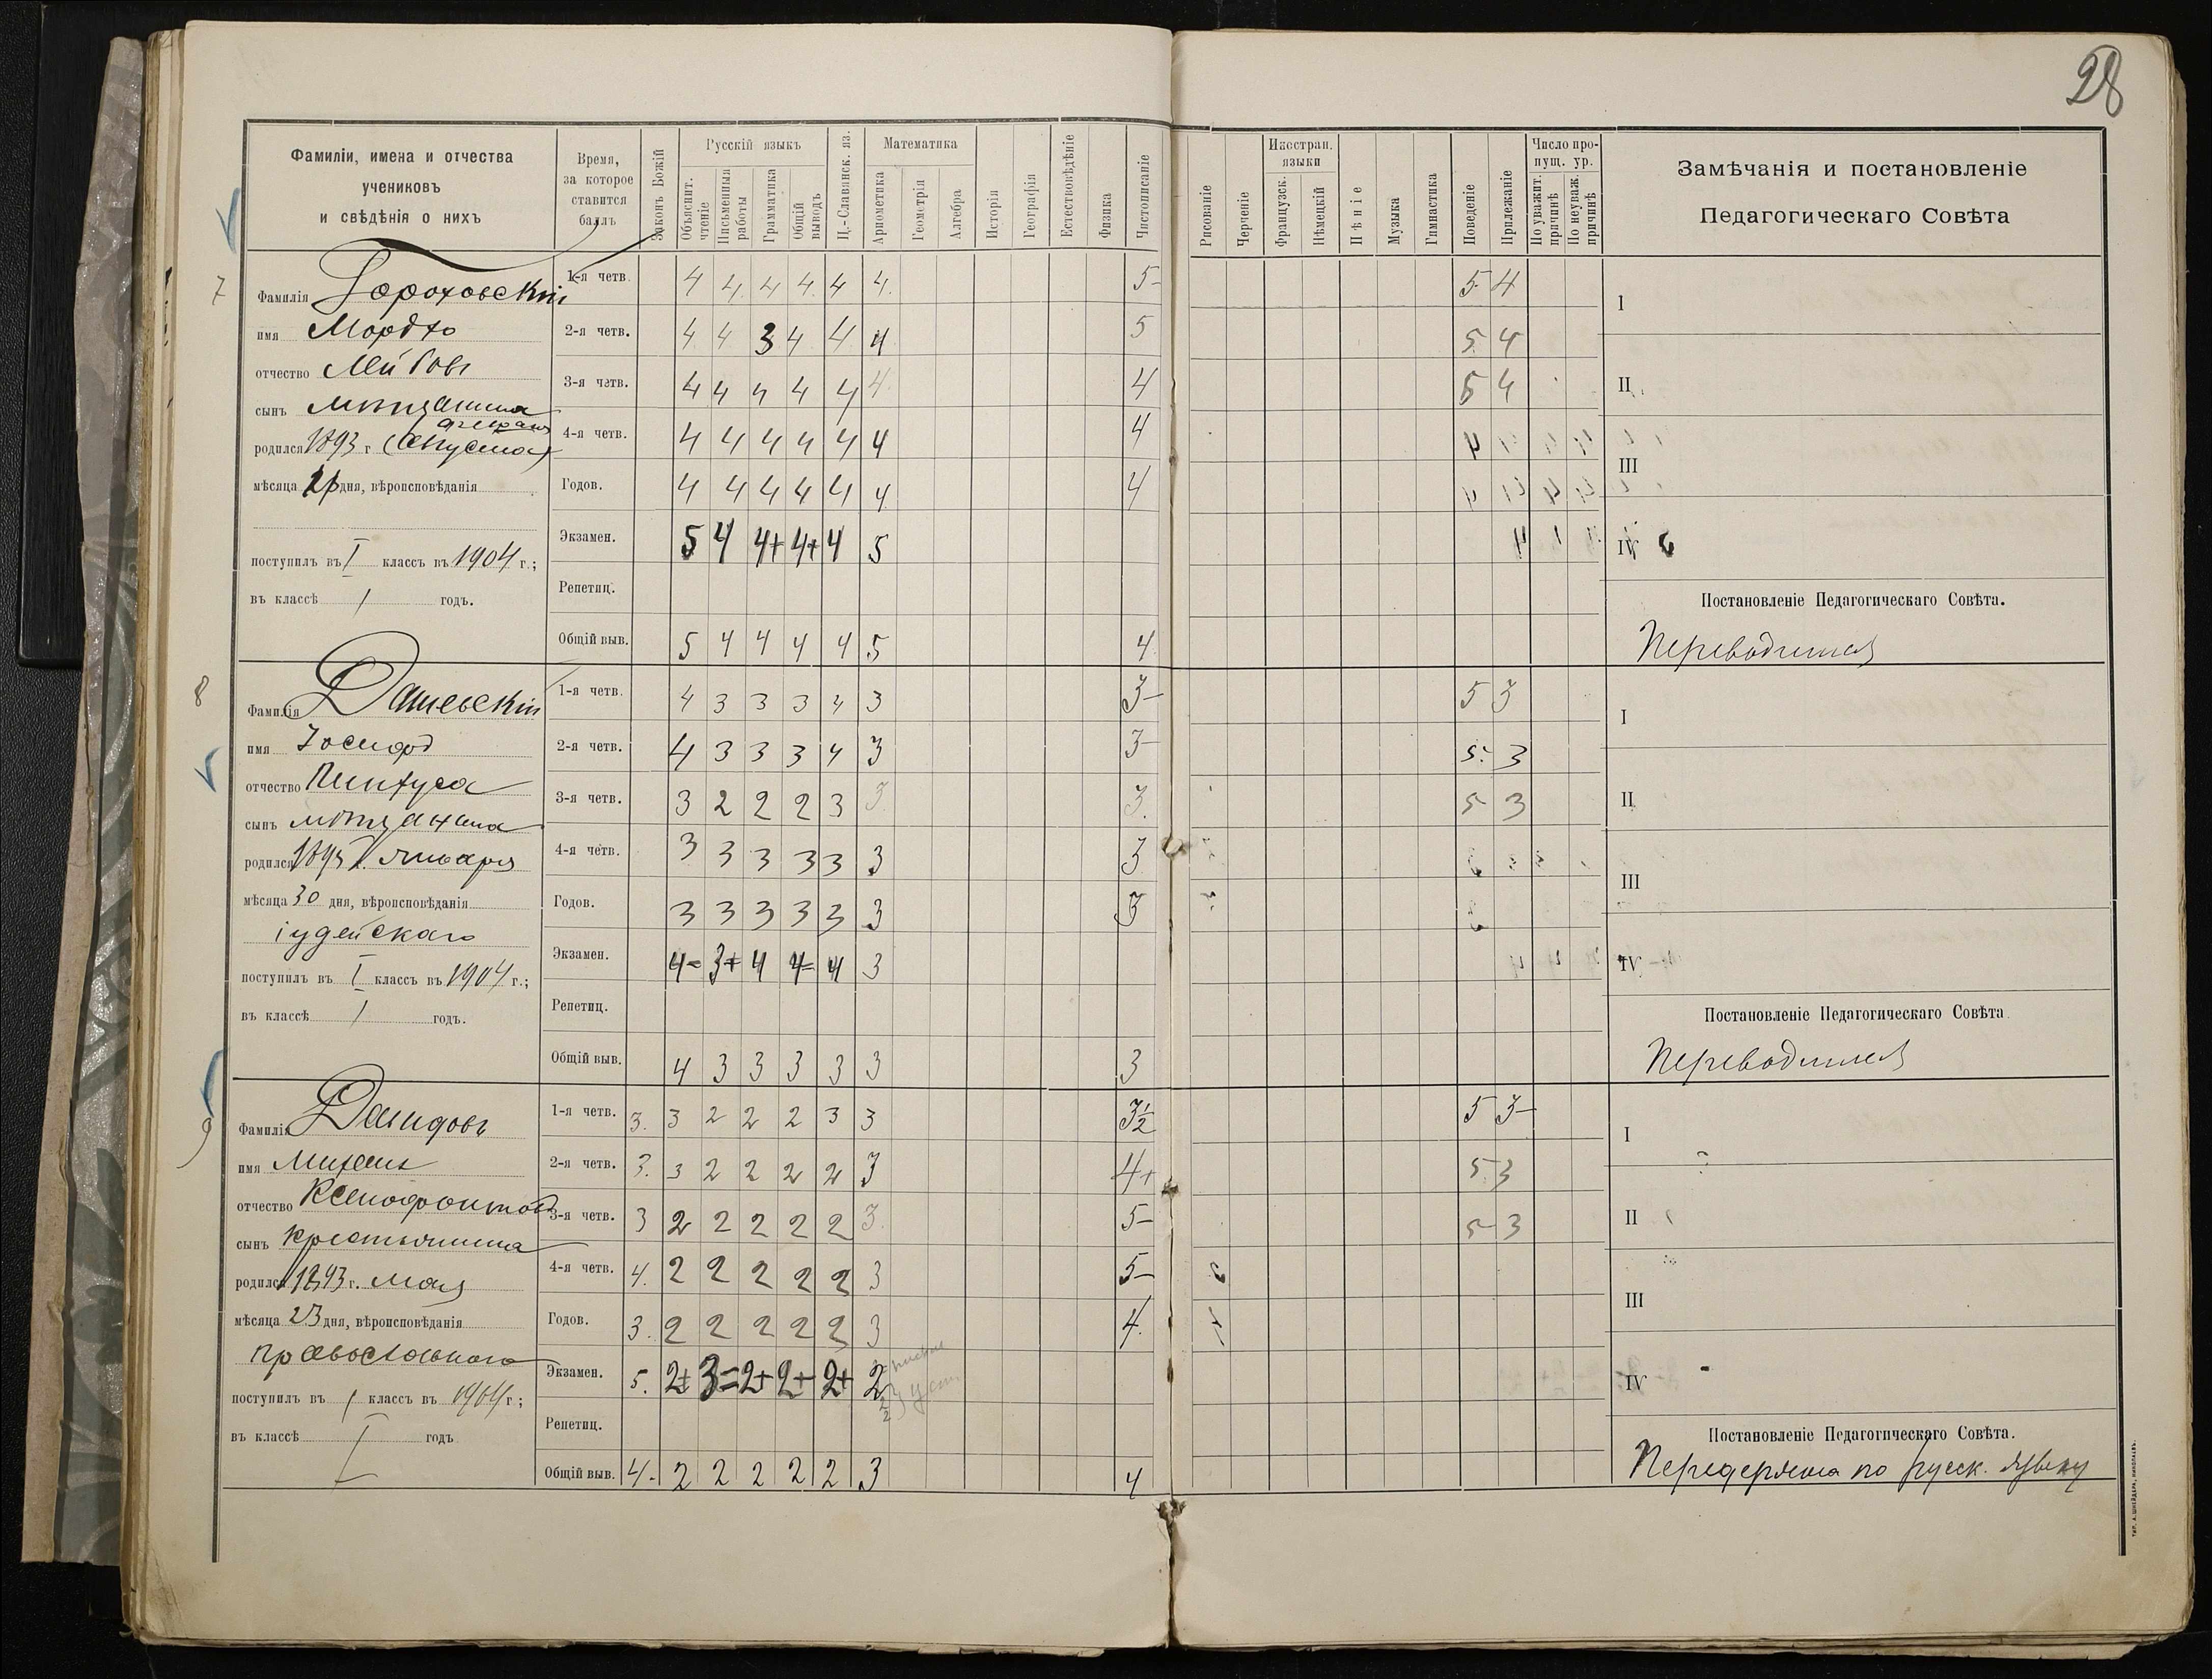 28
Фамиліи, имена и отчества
учениковъ
и свѣдѣнія о нихъ
Время,
за которое
ставится
баллъ
Законъ Божій
Русскій языкъ
Объяснит. чтеніе
Письменныя работы
Грамматика
Общій выводъ
Ц.-Славянск. яз.
Математика
Ариөметика
Геометрія
Алгебра
Исторія
Географія
Естествовѣдѣніе
Физика
Чистописаніе
Рисованіе
Черченіе
Иностран. языки
Французск.
Нѣмецкій
Пѣніе
Музыка
Гимнастика
Поведеніе
Прилежаніе
Число пропущ. ур.
По уважит. причинѣ
По неуваж. причинѣ
Замѣчанія и постановленіе
Педагогическаго Совѣта
7
Фамилія Гороховскій
имя Мордхо
отчество Лейбовъ
сынъ мѣщанина
родился 1893 г (августа)
мѣсяца дня, вѣроисповѣданія
поступилъ въ I классъ въ 1904 г.;
въ классѣ 1 годъ.
1-я четв. 4 4 4 4 4 4 5- 5 4
2-я четв. 4 4 3 4 4 4 5 5 4
3-я четв. 4 4 4 4 4 4 4 5 4
4-я четв. 4 4 4 4 4 4 4
Годов. 4 4 4 4 4 4 4
Экзамен. 5 4 4+ 4+ 4 5
Репетиц.
Общій выв. 5 4 4 4 4 5 4
I
II
III
IV
Постановленіе Педагогическаго Совѣта.
Переводится
8
Фамилія Дашевскій
имя Іосифъ
отчество Пинхуса
сынъ мѣщанина
родился 1895 г. января
мѣсяца 30 дня, вѣроисповѣданія
іудейскаго
поступилъ въ I классъ въ 1904 г.;
въ классѣ 1 годъ.
1-я четв. 4 3 3 3 4 3 3- 5 3
2-я четв. 4 3 3 3 4 3 3- 5 3
3-я четв. 3 2 2 2 3 3 3 5 3
4-я четв. 3 3 3 3 3 3 3
Годов. 3 3 3 3 3 3 3
Экзамен. 4- 3+ 4 4= 4 3
Репетиц.
Общій выв. 4 3 3 3 3 3 3
I
II
III
IV
Постановленіе Педагогическаго Совѣта
Переводится
9
Фамилія Демидовъ
имя Михаилъ
отчество Ксенофонтовъ
сынъ крестьянина
родился 1893 г. мая
мѣсяца 23 дня, вѣроисповѣданія
православнаго
поступилъ въ 1 классъ въ 1904 г.;
въ классѣ I годъ
1-я четв. 3. 3 2 2 2 3 3 3½ 5 3-
2-я четв. 3. 3 2 2 2 2 3 4+ 5 3
3-я четв. 3 2 2 2 2 2 3 5- 5 3
4-я четв. 4. 2 2 2 2 2 3 5-
Годов. 3. 2 2 2 2 2 3 4.
Экзамен. 5. 2± 3= 2+ 2+ 2+ 2
Репетиц.
Общій выв. 4. 2 2 2 2 2 3 4
I
II
III
IV
Постановленіе Педагогическаго Совѣта.
по русск. языку
ТИП. А. ШНЕЙДЕРА, НИКОЛАЕВЪ.